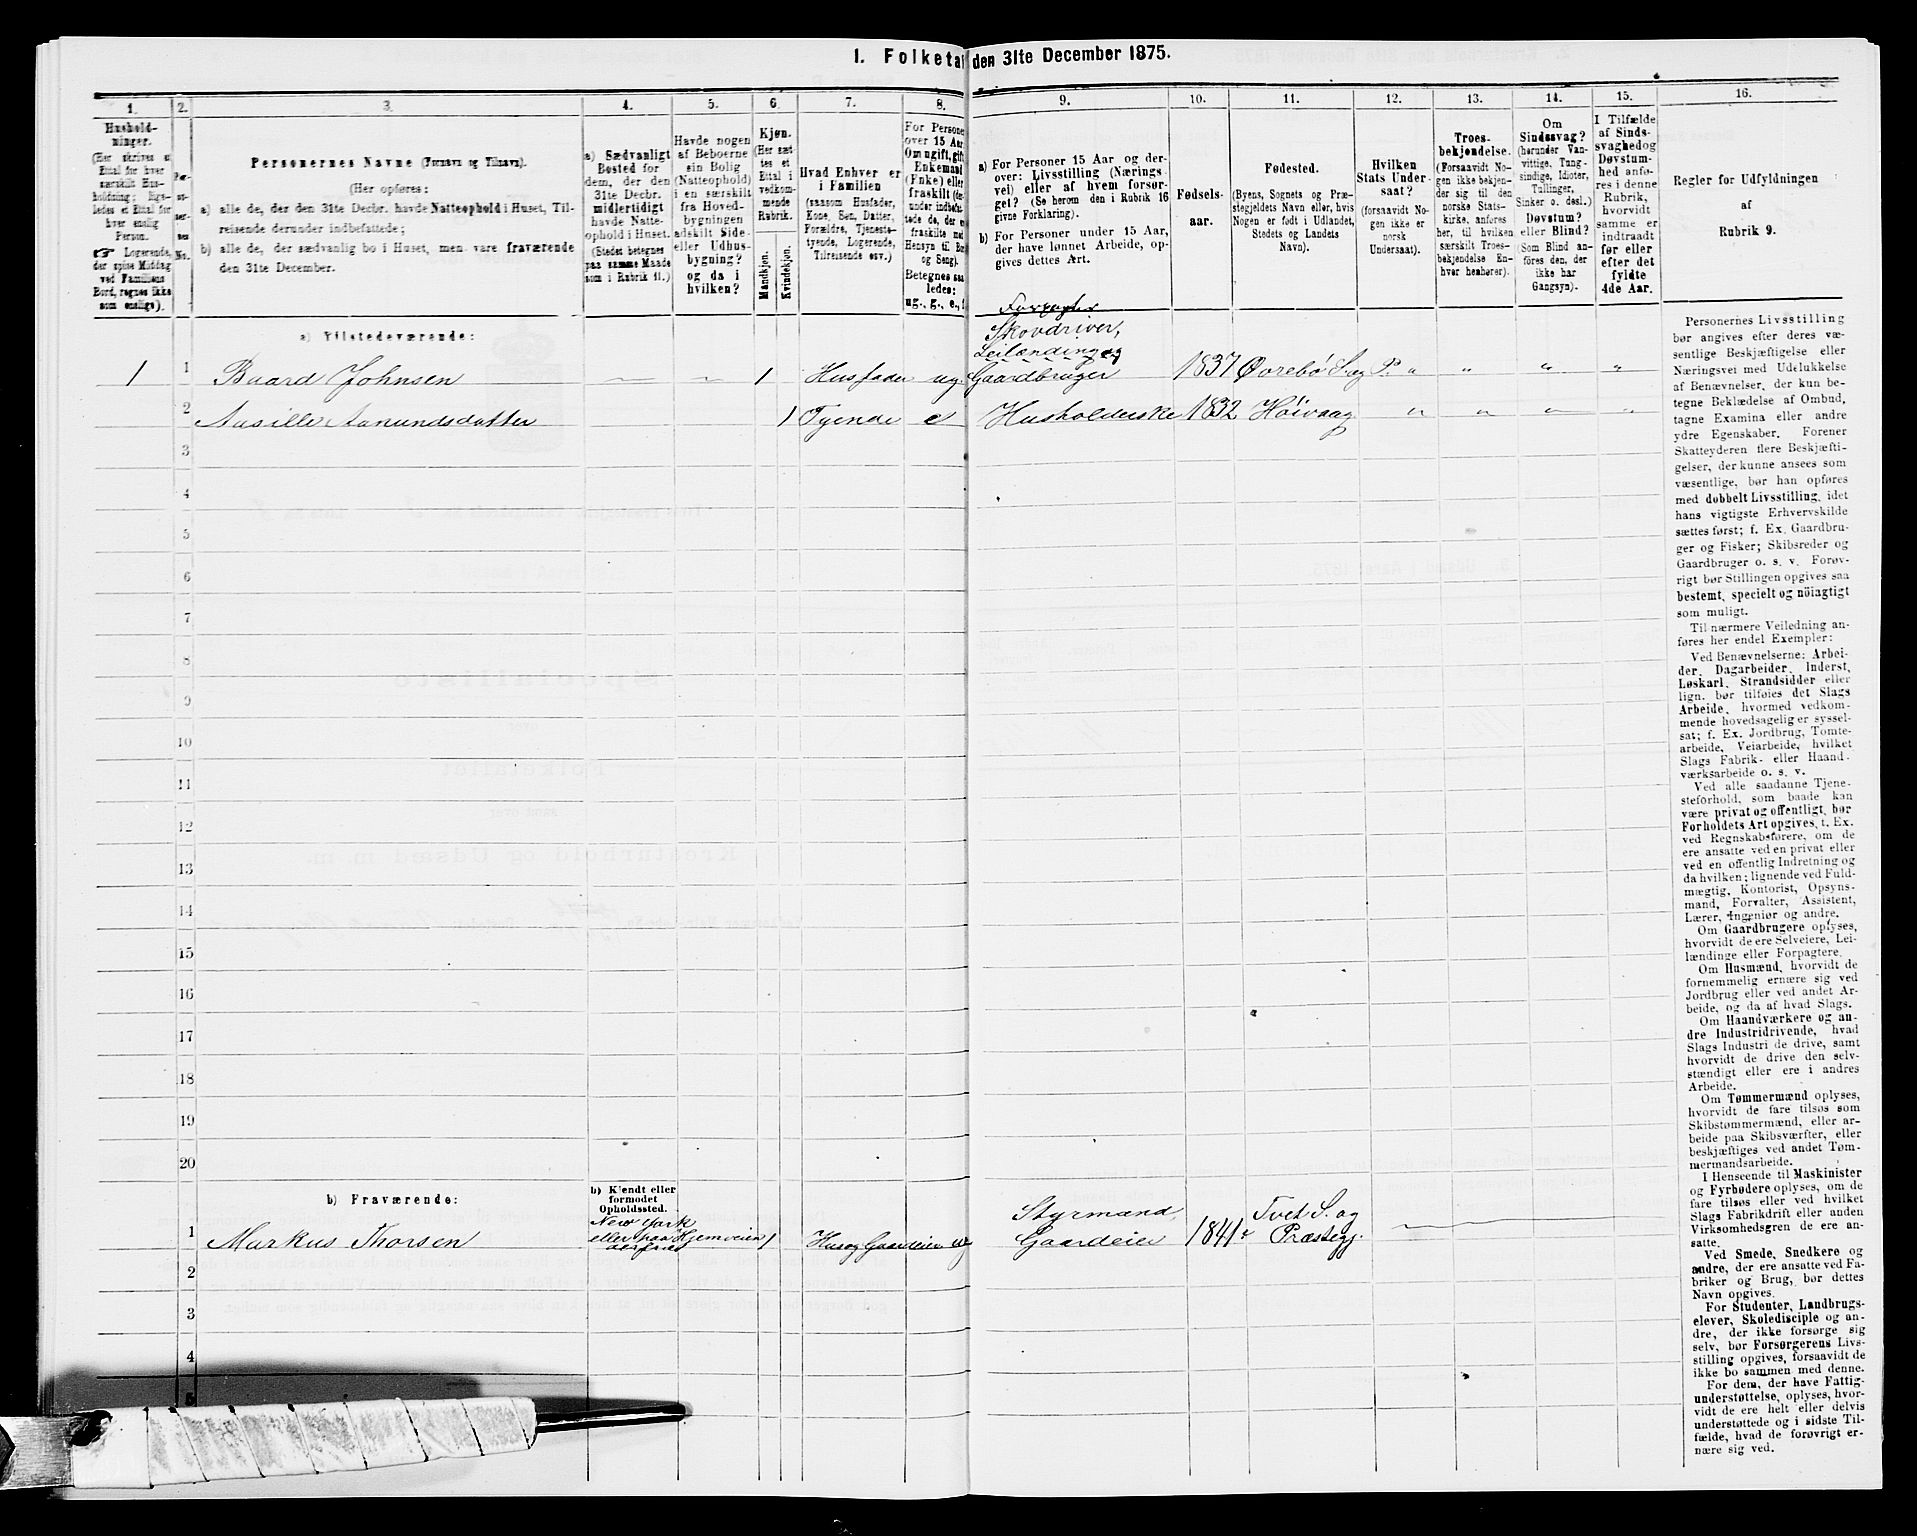 I. Folketal den 31te December 1875.
1. 2. 3. 4. 5. 6. 7. 8. 9. 10. 11. 12. 13. 14. 15. 16.
Hushold-
ninger.
(Her skrives et
Ettal for hver
særskilt Hus-
holdning; lige-
ledes et Ettal for
hver enslig
Person.
☞ Logerende,
der spise Middag
ved Familiens
Bord, regnes ikke
som enslige).
Per-
so-
ner-
nes
No.
Personernes Navne (Fornavn og Tilnavn).
(Her opføres:
a) alle de, der den 31te Decbr. havde Natteophold i Huset, Til-
reisende derunder indbefattede;
b) alle de, der sædvanlig bo i Huset, men vare fraværende
den 31te December.
a) Sædvanligt
Bosted for
dem, der den
31te Decbr.
midlertidigt
havde Natte-
ophold i Huset.
(Stedet betegnes
paa samme Maade
som i Rubrik 11.)
Havde nogen
af Beboerne
sin Bolig
(Natteophold)
i en særskilt
fra Hoved-
bygningen
adskilt Side-
eller Udhus-
bygning?
og da i
hvilken?
Kjøn.
(Her sæt-
tes et
Ettal i
vedkom-
mende
Rubrik.
Mandkjøn.
Kvindekjøn.
Hvad Enhver er
i Familien
(saasom Husfader,
Kone, Søn, Datter,
Forældre, Tjeneste-
tyende, Logerende,
Tilreisende osv.)
For Personer
over 15 Aar:
Om ugift, gift,
Enkemand
(Enke) eller
fraskilt
Betegnes saa-
ledes:
ug., g., e., f.
a) For Personer 15 Aar og der-
over: Livsstilling (Nærings-
vei) eller af hvem forsør-
get? (Se herom den i Rubrik 16
givne Forklaring).
b) For Personer under 15 Aar,
der have lønnet Arbeide, op-
gives dettes Art.
Fødsels-
aar.
Fødested.
(Byens, Sognets og Præ-
stegjeldets Navn eller, hvis
Nogen er født i Udlandet,
Stedets og Landets
Navn).
Hvilken
Stats Under-
saat?
(forsaavidt No-
gen ikke er
norsk
Undersaat).
Troes-
bekjendelse.
(Forsaavidt No-
gen ikke bekjen-
der sig til den
norske Stats-
kirke, anføres
her, til hvilken
særskilt Troes-
bekjendelse En-
hver henhører).
Om
Sindssvag?
(herunder Van-
vittige, Tung-
sindige, Idioter,
Tullinger,
Sinker o. desl.)
Døvstum?
eller Blind?
(Som Blind an-
føres den, der
ikke har
Gangsyn).
I Tilfælde
af Sinds-
svaghed og
Døvstum-
hed anfø-
res i denne
Rubrik,
hvorvidt
samme er
indtraadt
før eller
efter det
fyldte
4de Aar.
Regler for Udfyldningen
af
Rubrik 9.
a) Tilstedeværende:
Forpagter
Skovdriver,
Leilænding og
1 1 Baard Johnsen 1 Husfader ug. Gaardbruger 1837 Øvrebø S. og P. " " " "
2 Aasille Aanundsdatter 1 Tyende e Husholderske 1832 Höivaag " " " "
3
4
5
6
7
8
9
10
11
12
13
14
15
16
17
18
19
20
b) Fraværende:
b) Kjendt eller
formodet
Opholdssted.
1 Markus Thorsen New York eller paa Hjemveien 1 Hus og Gaardeier ug Styrmand, Gaardeier 1841 Tvet S. og Præstegj.
2
3
4
5
Personernes Livsstilling
bør angives efter deres væ-
sentlige Beskjæftigelse eller
Næringsvei med Udelukkelse
af Benævnelser, der kun be-
tegne Beklædelse af Ombud,
tagne Examina eller andre
ydre Egenskaber. Forener
Skatteyderen flere Beskjæfti-
gelser, der kunne ansees som
væsentlige, bør han opføres
med dobbelt Livsstilling, idet
hans vigtigste Erhvervskilde
sættes først; f. Ex. Gaardbru-
ger og Fisker; Skibsreder og
Gaardbruger o. s. v. Forøv-
rigt bør Stillingen opgives saa
bestemt, specielt og nöiagtigt
som muligt.
Til nærmere Veiledning an-
føres her endel Exempler:
Ved Benævnelserne: Arbei-
der, Dagarbeider, Inderst,
Løskarl, Strandsidder eller
lign. bør tilføies det Slags
Arbeide, hvormed vedkom-
mende hovedsagelig er syssel-
sat; f. Ex. Jordbrug, Tomte-
arbeide, Veiarbeide, hvilket
Slags Fabrik- eller Haand-
værksarbeide o. s. v.
Ved alle saadanne Tjene-
steforhold, som baade kan
være privat og offentligt, bør
Forholdets Art opgives, t. Ex.
ved Regnskabsførere, om de
ere ansatte ved en privat eller
ved en offentlig Indretning og
da hvilken; lignende ved Fuld-
mægtig, Kontorist, Opsyns-
mand, Forvalter, Assistent,
Lærer, Ingeniør og andre.
Om Gaardbrugere oplyses,
hvorvidt de ere Selveiere, Lei-
lændinge eller Forpagtere.
Om Husmænd, hvorvidt de
fornemmelig ernære sig ved
Jordbrug eller ved andet Ar-
beide, og da af hvad Slags.
Om Haandværkere og an-
dre Industridrivende, hvad
Slags Industri de drive, samt
hvorvidt de drive den selv-
stændigt eller ere i andres
Arbeide.
Om Tømmermænd oplyses,
hvorvidt de fare tilsøs som
Skibstømmermænd, eller ar-
beide paa Skibsværfter, eller
beskjæftiges ved andet Tøm-
mermandsarbeide.
I Henseende til Maskinister
og Fyrbødere oplyses, om de
fare tilsøs eller ved hvilket
Slags Fabrikdrift eller anden
Virksomhedsgren de ere an-
satte.
Ved Smede, Snedkere og
andre, der ere ansatte ved Fa-
briker og Brug, bør dettes
Navn opgives.
For Studenter, Landbrugs-
elever, Skoledisciple og an-
dre, der ikke forsørge sig
selv, bør Forsørgerens Livs-
stilling opgives, forsaavidt de
ikke bo sammen med denne.
For dem, der have Fattig-
understøttelse, oplyses, hvor-
vidt de ere helt eller delvis
understøttede og i sidste Til-
fælde, hvad de forøvrigt er-
nære sig ved.